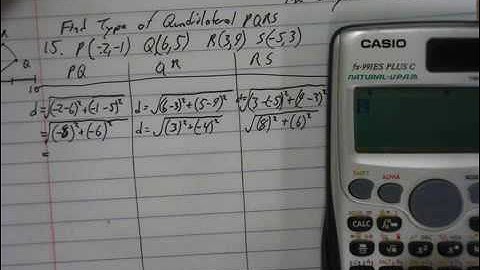 Find Type of Quadrilateral PQRS
15. P(-2,-1) Q(6,5) R(3,9) S(-5,3)
Q
10
PQ QR RS
d = √(-2-6)² + (-1-5)² d = √(6-3)² + (5-9)² d = √(3-(-5))² + (9-3)²
= √(-8)² + (-6)² d = √(3)² + (-4)² √(8)² + (6)²
=
CASIO
fx-991ES PLUS C
NATURAL-V.P.A.M.
SHIFT ALPHA
CALC